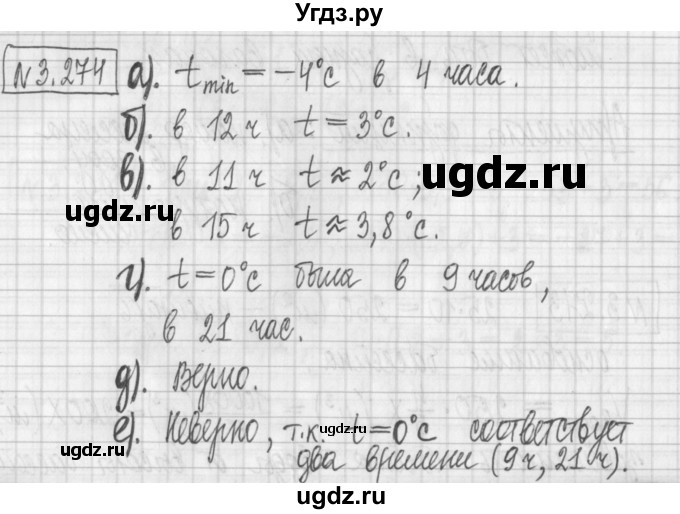 Угдз.ру
№3.274 а). tmin = -4°С в 4 часа.
б). в 12 ч t = 3°С.
в). в 11 ч t ≈ 2°С;
ugdz.ru
ugdz.ru
в 15 ч t ≈ 3,8°С.
г). t = 0°С была в 9 часов,
в 21 час.
ugdz.ru
д). Верно.
е). Неверно, т.к. t = 0°С соответствует
ugdz.ru
два времени (9ч, 21 ч).
ugdz.ru
ugdz.ru